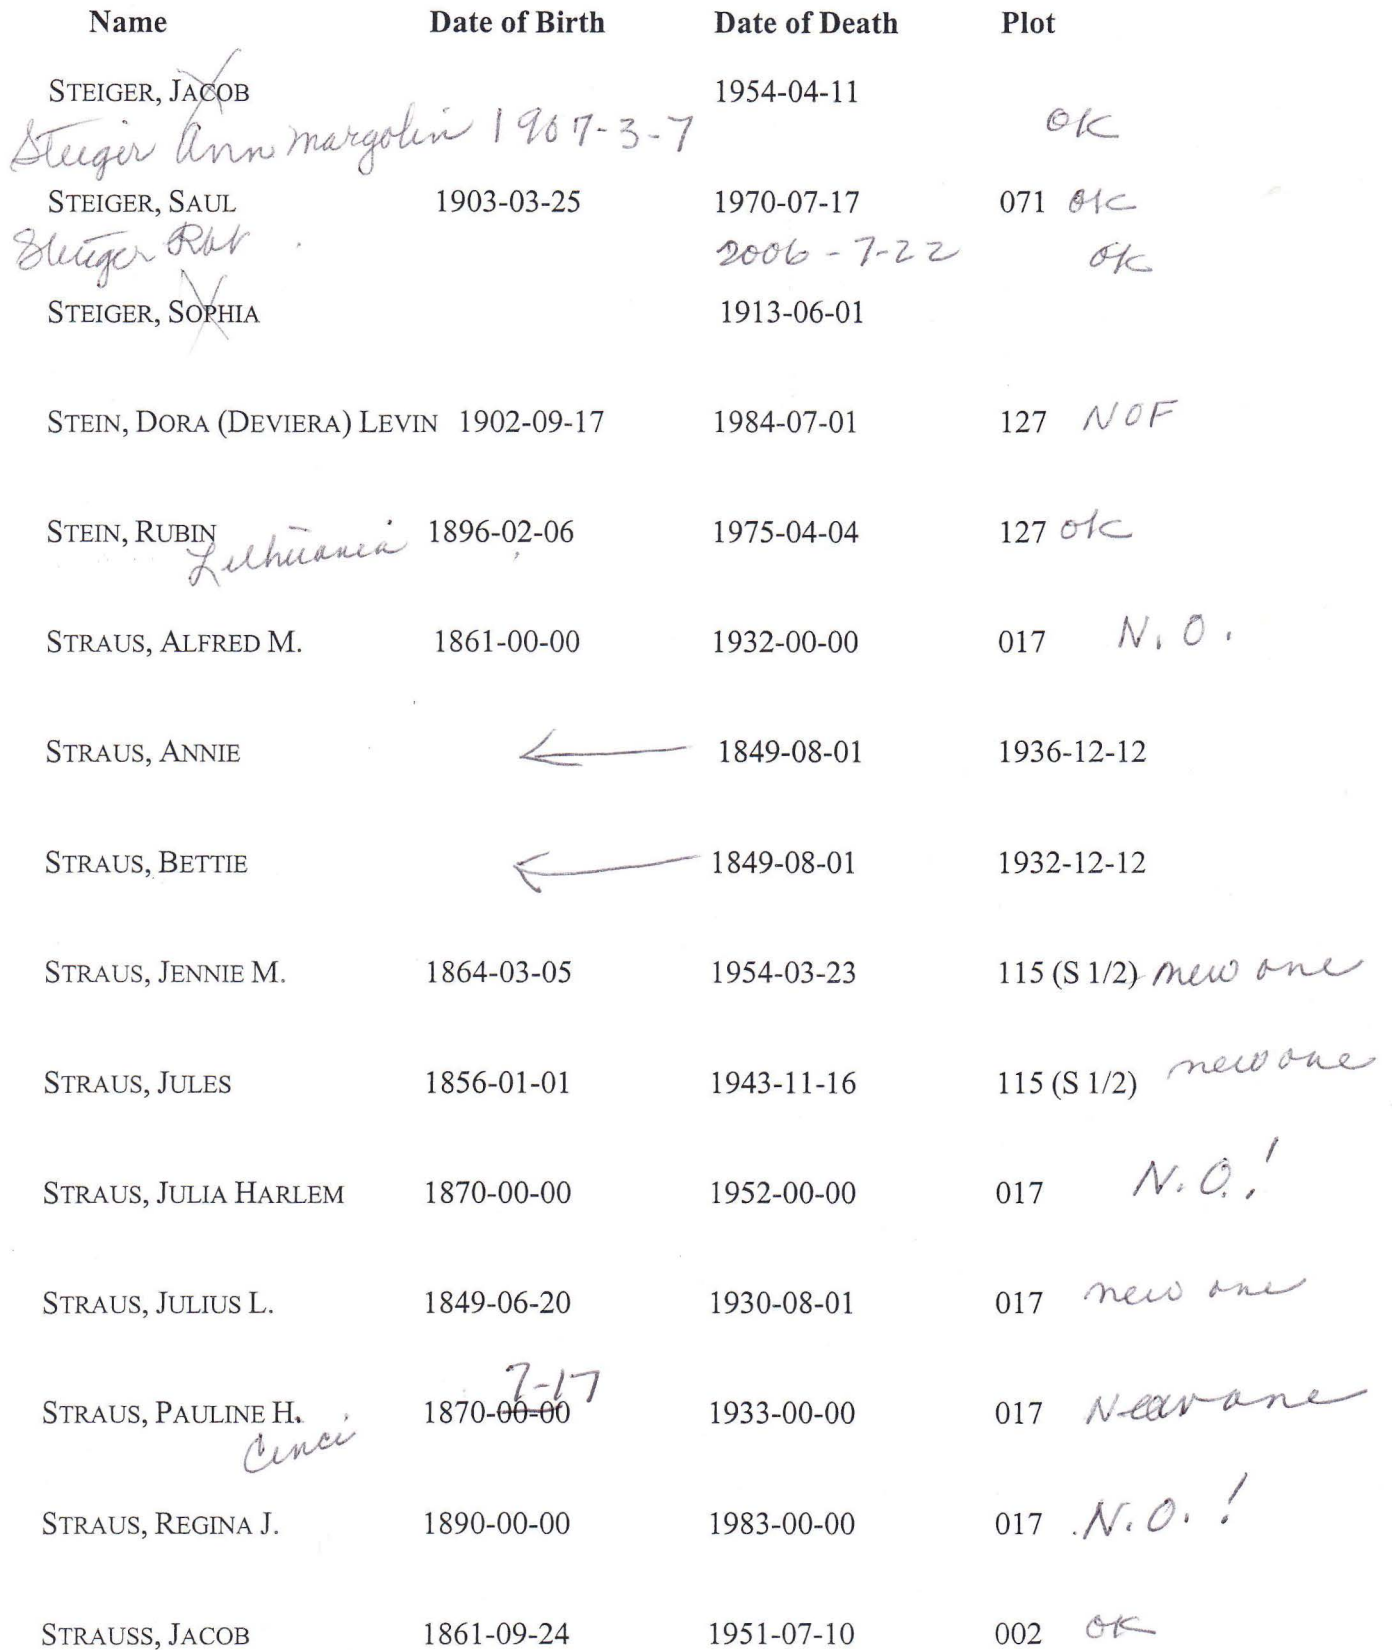 Name Date of Birth Date of Death Plot
STEIGER, JACOB 1954-04-11
Steiger Ann Margolin 1907-3-7 OK
STEIGER, SAUL 1903-03-25 1970-07-17 071 OK
Steiger 2006-7-22 OK
STEIGER, SOPHIA 1913-06-01
STEIN, DORA (DEVIERA) LEVIN 1902-09-17 1984-07-01 127 NOF
STEIN, RUBIN 1896-02-06 1975-04-04 127 OK
Lithuania
STRAUS, ALFRED M. 1861-00-00 1932-00-00 017 N.O.
STRAUS, ANNIE ← 1849-08-01 1936-12-12
STRAUS, BETTIE ← 1849-08-01 1932-12-12
STRAUS, JENNIE M. 1864-03-05 1954-03-23 115 (S 1/2) new one
STRAUS, JULES 1856-01-01 1943-11-16 115 (S 1/2) new one
STRAUS, JULIA HARLEM 1870-00-00 1952-00-00 017 N.O.!
STRAUS, JULIUS L. 1849-06-20 1930-08-01 017 new one
7-17
STRAUS, PAULINE H. 1870-00-00 1933-00-00 017 New one
Cinci
STRAUS, REGINA J. 1890-00-00 1983-00-00 017 N.O.!
STRAUSS, JACOB 1861-09-24 1951-07-10 002 OK